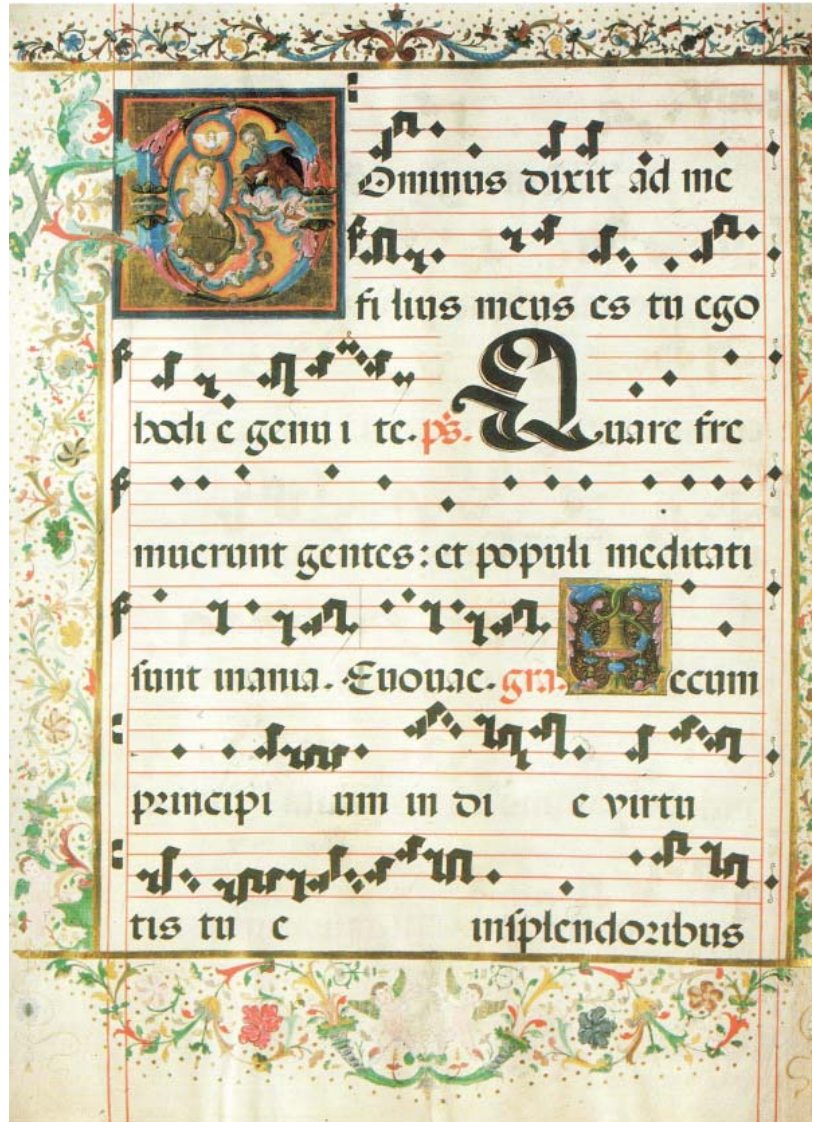 Dominus dixit ad me
fi lius meus es tu ego
hodi e genu i te. ps. Quare fre
muerunt gentes: et populi meditati
sunt inania. Euouae. gra. Tecum
principi um in di e virtu
tis tu e insplendoribus